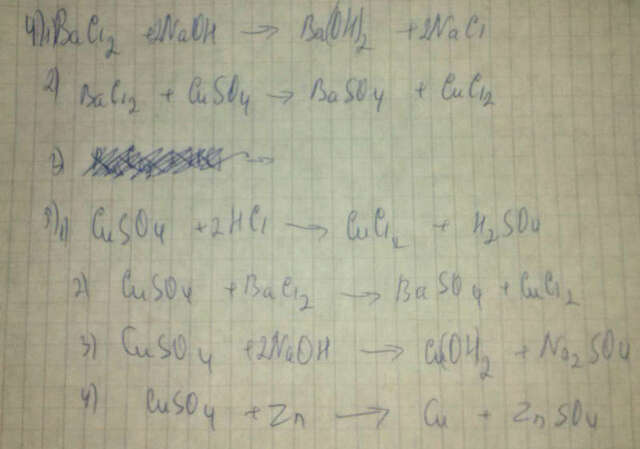 4) 1) BaCl2 + 2NaOH → Ba(OH)2 + 2NaCl
2) BaCl2 + CuSO4 → BaSO4 + CuCl2
3)1) CuSO4 + 2HCl → CuCl2 + H2SO4
2) CuSO4 + BaCl2 → BaSO4 + CuCl2
3) CuSO4 + 2NaOH → Cu(OH)2 + Na2SO4
4) CuSO4 + Zn → Cu + ZnSO4